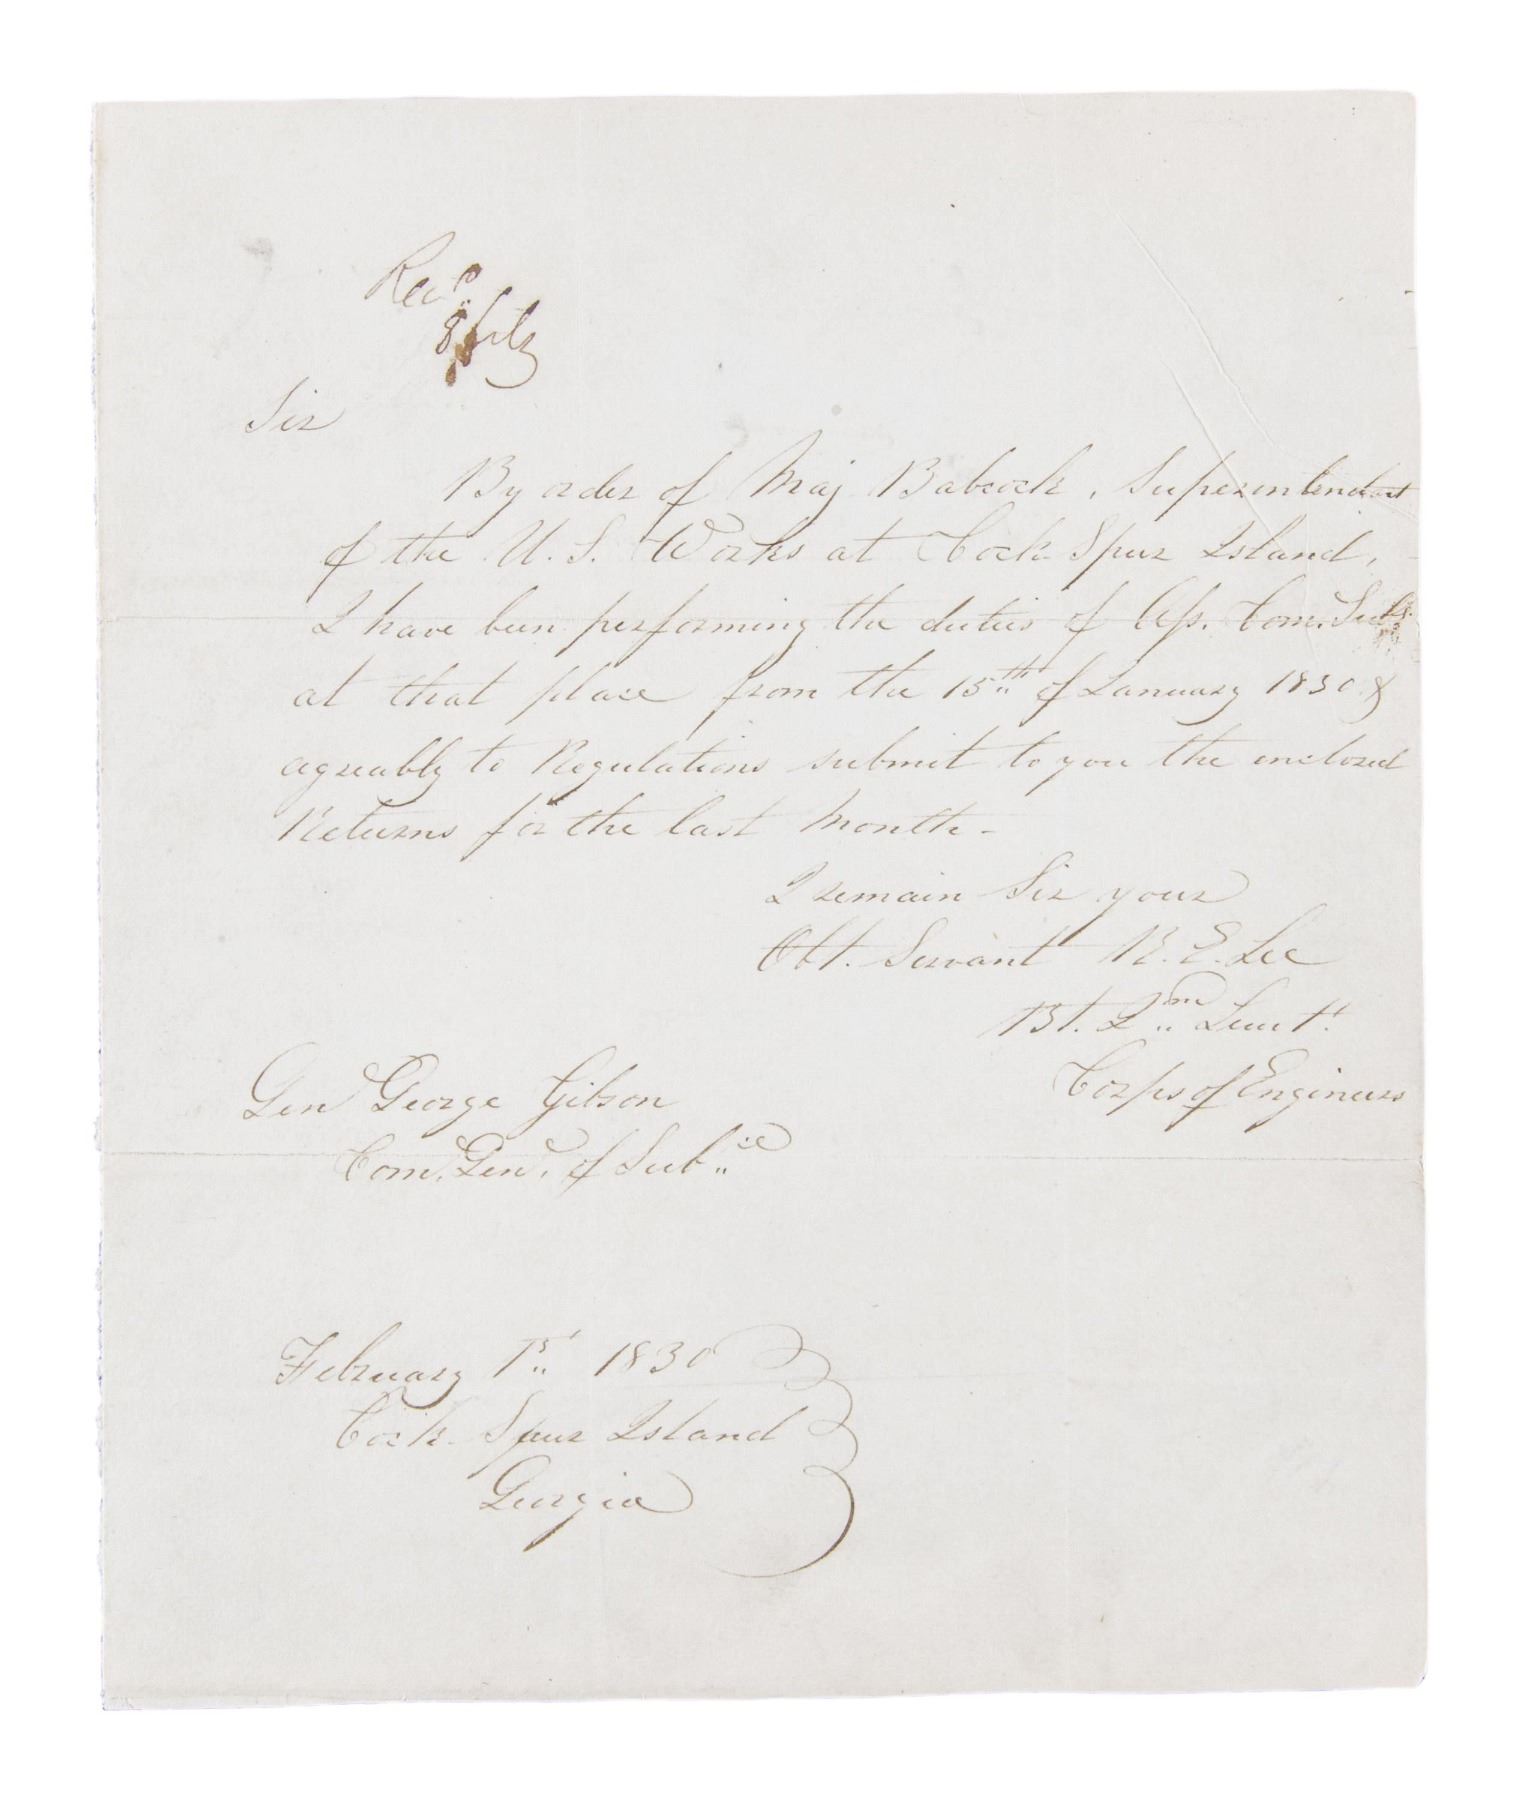 Recd
8 feb
Sir
By order of Maj Babcock, Superintendant
of the U. S. Works at Cock Spur Island,
I have been performing the duties of Ass. Com. Subs.
at that place from the 15th of January 1830 &
agreably to Regulations submit to you the enclosed
Returns for the last Month -
I remain Sir your
Obt. Servant R. E. Lee
Bt. 2nd Lieut.
Corps of Engineers
Gen George Gibson
Com. Gen. of Subce
February 1st 1830
Cock Spur Island
Georgia